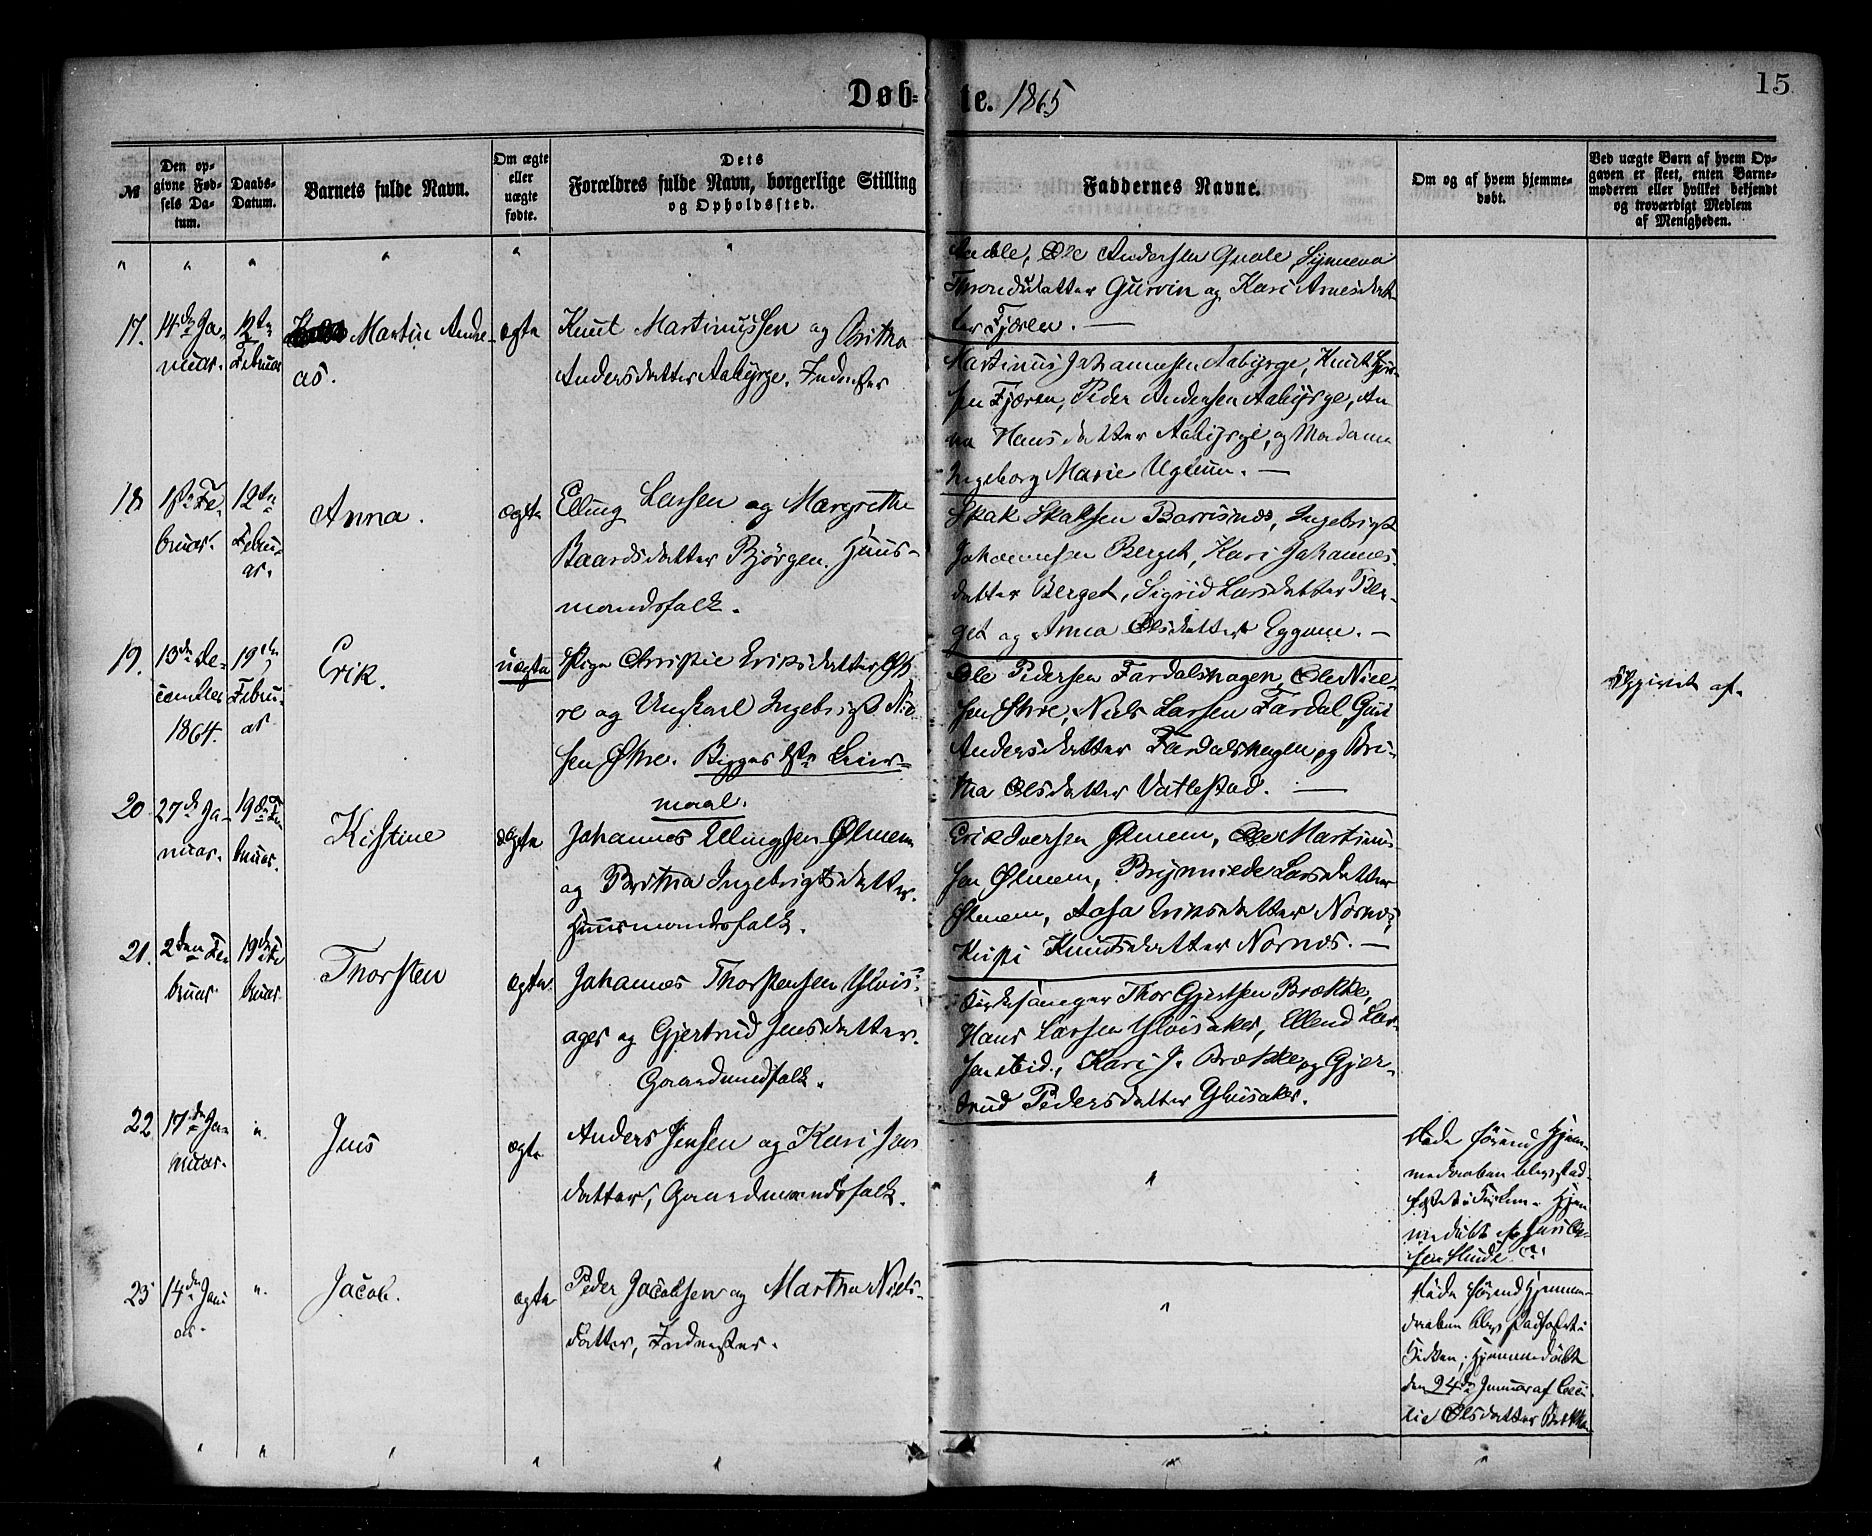 Døb-te. 1865
15
№
Den op-
givne Fød-
sels Da-
tum.
Daabs-
Datum.
Barnets fulde Navn.
Om ægte
eller
uægte
fødte.
Dets
Forældres fulde Navn, borgerlige Stilling
og Opholdssted.
Faddernes Navne.
Om og af hvem hjemme-
døbt.
Ved uægte Børn af hvem Op-
gaven er skeet, enten Barne-
moderen eller hvilket bekjendt
og troværdigt Medlem
af Menigheden.
" " " " " "
Ole Andersen Quale, Synneva
Throndsdatter Gurvin og Kari Arnesdat-
ter Fjæren. —
17. 14de Ja-
nuar.
12te
Februar
Martin Andre-
as.
ægte
Knut Martinussen og Britha
Andersdatter Aabyrge. Inderster
Martinus Johannesen Aabyrge, Knut
sen Fjæren, Peder Andersen Aabyrge, An-
na Hansdatter Aabyrge, og Madame
Ingeborg Marie Uglum. —
18 1ste Fe-
bruar.
12te
Febru-
ar.
Anna.
ægte
Elling Larsen og Margrethe
Baardsdatter Bjørgen. Huus-
mandsfolk.
Skak Skaksen Barsnæs, Ingebrigt
Johannesen Berget, Kari Johannes-
datter Berget, Sigrid Larsdatter Ber-
get og Anna Olsdatter Eggum. —
19. 13de De-
cember
1864.
19de
Febru-
ar
Erik.
uægte
Pige Christie Eriksdatter Øv-
re og Ungkarl Ingebrigt Niel-
sen Øvre. Begges 1ste Leier-
maal.
Ole Pedersen Fardalshagen, Ole Niel-
sen Øvre, Niels Larsen Fardal, Guri
Andersdatter Fardalshagen og Bri-
tha Olsdatter Vatlestad. —
Opgivet af
20 27de Ja-
nuar.
19de Fe-
bruar.
Kistine
ægte
Johannes Ellingsen Ølmem
og Britha Ingebrigtsdatter.
Huusmandsfolk.
Erik Iversen Ølmem, Ole Martinus-
sen Ølmem, Brynnilde Larsdatter
Ølmem, Aasa Eriksdatter Nornæs,
Kristi Knutsdatter Nornæs. —
21. 2den Fe-
bruar.
19de Fe-
bruar.
Thorsten
ægte
Johannes Thorstensen Ylvis-
ager og Gjertrud Jensdatter.
Gaardmandsfolk.
Kirkesanger Thor Gjertsen Brække,
Hans Larsen Ylvisaker, Ellend Lar-
sen ibid., Kari J. Brække og Gjer-
trud Pedersdatter Ylvisaker.
22 17de Ja-
nuar.
".
Jens
ægte
Anders Jensen og Kari Jens-
datter, Gaardmandsfolk.
"
Døde førend Hjem-
medaaben blev stad-
fæstet i Kirken. Hjem-
medøbt af
23 14de Janu-
ar.
".
Jacob.
ægte
Peder Jacobsen og Martha Niels-
datter, Inderster.
"
Døde førend Hjemme-
daaben blev stadfæstet i
Kirken; Hjemmedøbt
den 24de Januar af Ceci-
lie Olsdatter
" " " " " " "